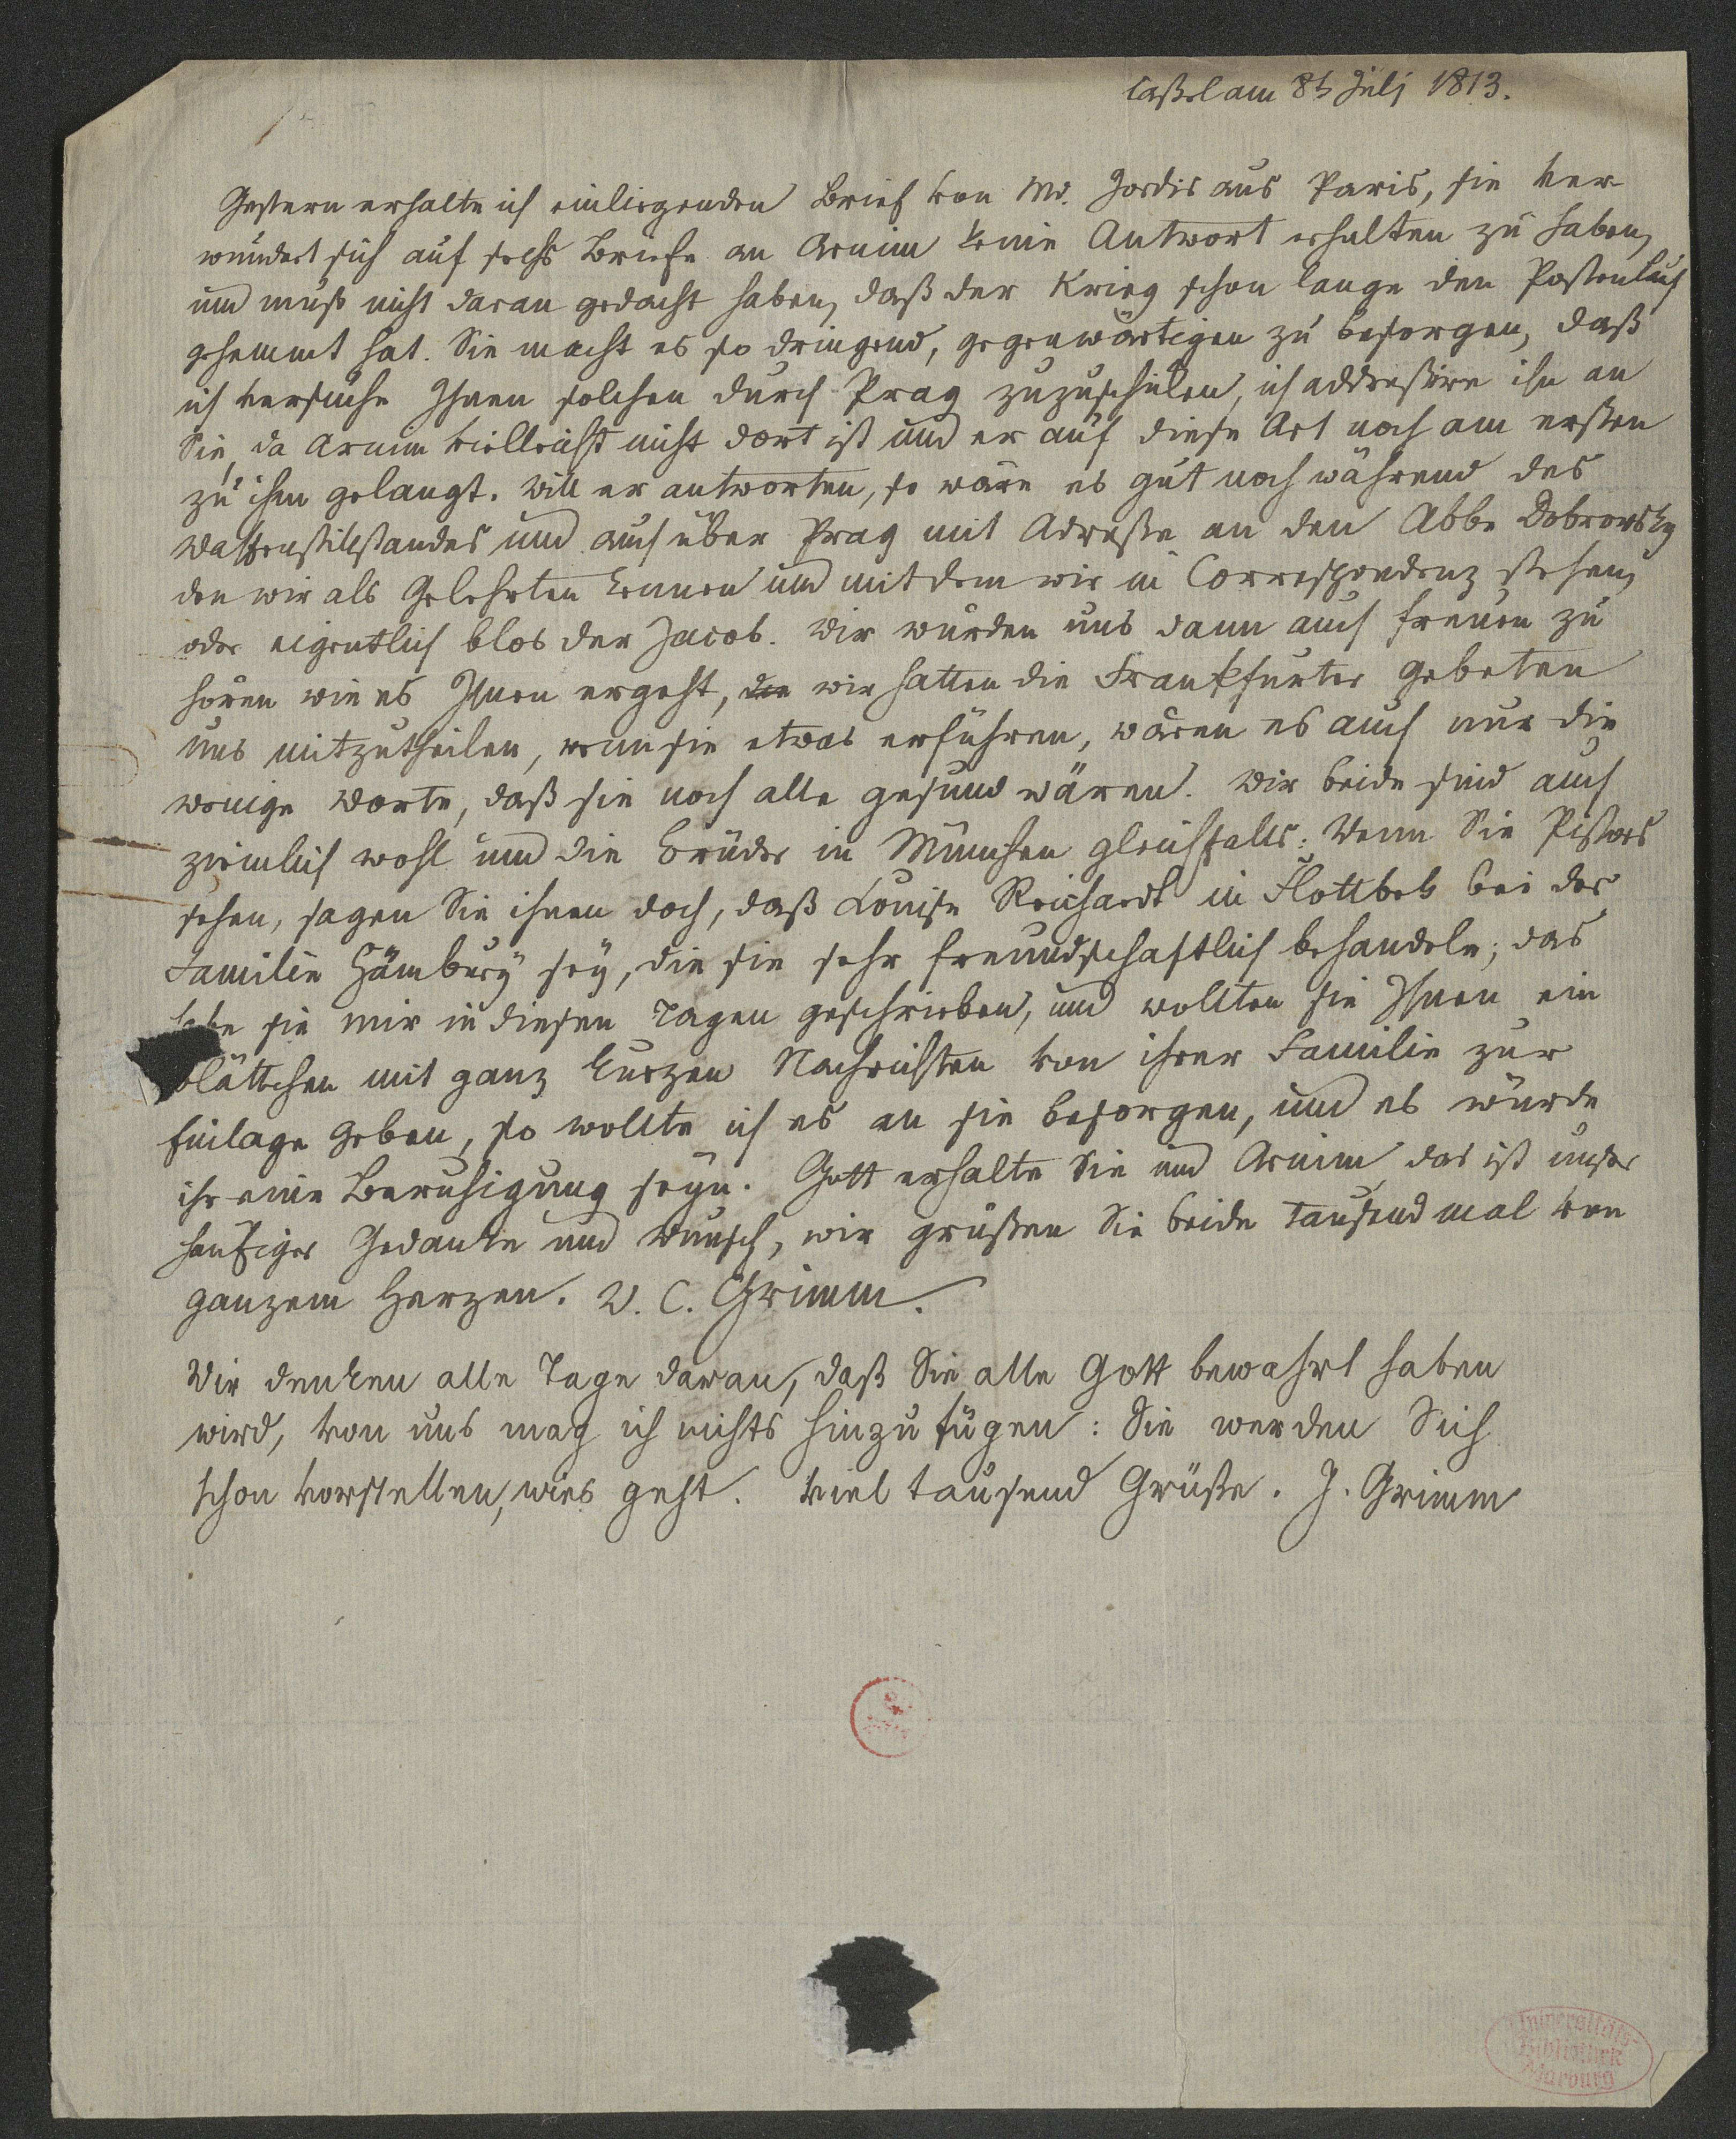 Caßel am 8t Julj 1813.
Gestern erhalte ich einliegenden Brief von Md. Jordis aus Paris, sie ver
wundert sich auf sechs Briefe an Arnim keine Antwort erhalten zu haben,
und muß nicht daran gedacht haben, daß der Krieg schon lange den Postenlauf
gehemmt hat. Sie macht es so dringend, gegenwärtigen zu besorgen, daß
ich versuche Ihnen solchen durch Prag zuzuschicken, ich addressire ihn an
Sie, da Arnim vielleicht nicht dort ist und er auf diese Art noch am ersten
zu ihm gelangt. Will er antworten, so wäre es gut noch während des
Waffenstillstandes und auch über Prag mit Adresse an den Abbe Dobrowsky
den wir als Gelehrten kennen und mit dem wir in Correspondenz stehen,
oder eigentlich blos der Jacob. Wir würden uns dann auch freuen zu
hören wie es Ihnen ergeht, die wir hatten die Frankfurter gebeten
uns mitzutheilen, wenn sie etwas erführen, wären es auch nur die
wenige Worte, daß sie noch alle gesund wären. Wir beide sind auch
ziemlich wohl und die Brüder in München gleichfalls. Wenn Sie Pistors
sehen, sagen Sie ihnen doch, daß Louise Reichardt in Flottbek bei der
Familie Hämbury sey, die sie sehr freundschaftlich behandeln; das
habe sie mir in diesen Tagen geschrieben, und wollten sie Ihnen ein
Blättchen mit ganz kurzen Nachrichten von ihrer Familie zur
Einlage geben, so wollte ich es an sie besorgen, und es würde
ihr eine Beruhigung seyn. Gott erhalte Sie und Arnim das ist unser
häufiger Gedanke und Wunsch, wir grüßen Sie beide tausend mal von
ganzem Herzen. W. C. Grimm.
Wir denken alle Tage daran, daß Sie alle Gott bewahrt haben
wird, von uns mag ich nichts hinzufügen: Sie werden Sich
schon vorstellen, wies geht. Viel tausend Grüße. J. Grimm
Universitäts-
Bibliothek
Marburg